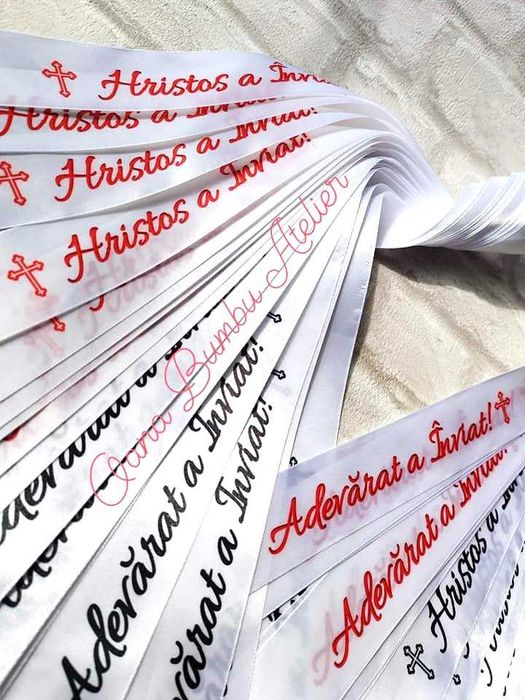 Hristos a Învi
Hristos a Înviat
Hristos a Înviat!
Hristos a Înviat!
Oana Bumbu Atelier
Adevărat a Înviat!
Adevărat a Înviat!
Adevărat a Înviat!
Adevărat a Înviat!
Hristos a